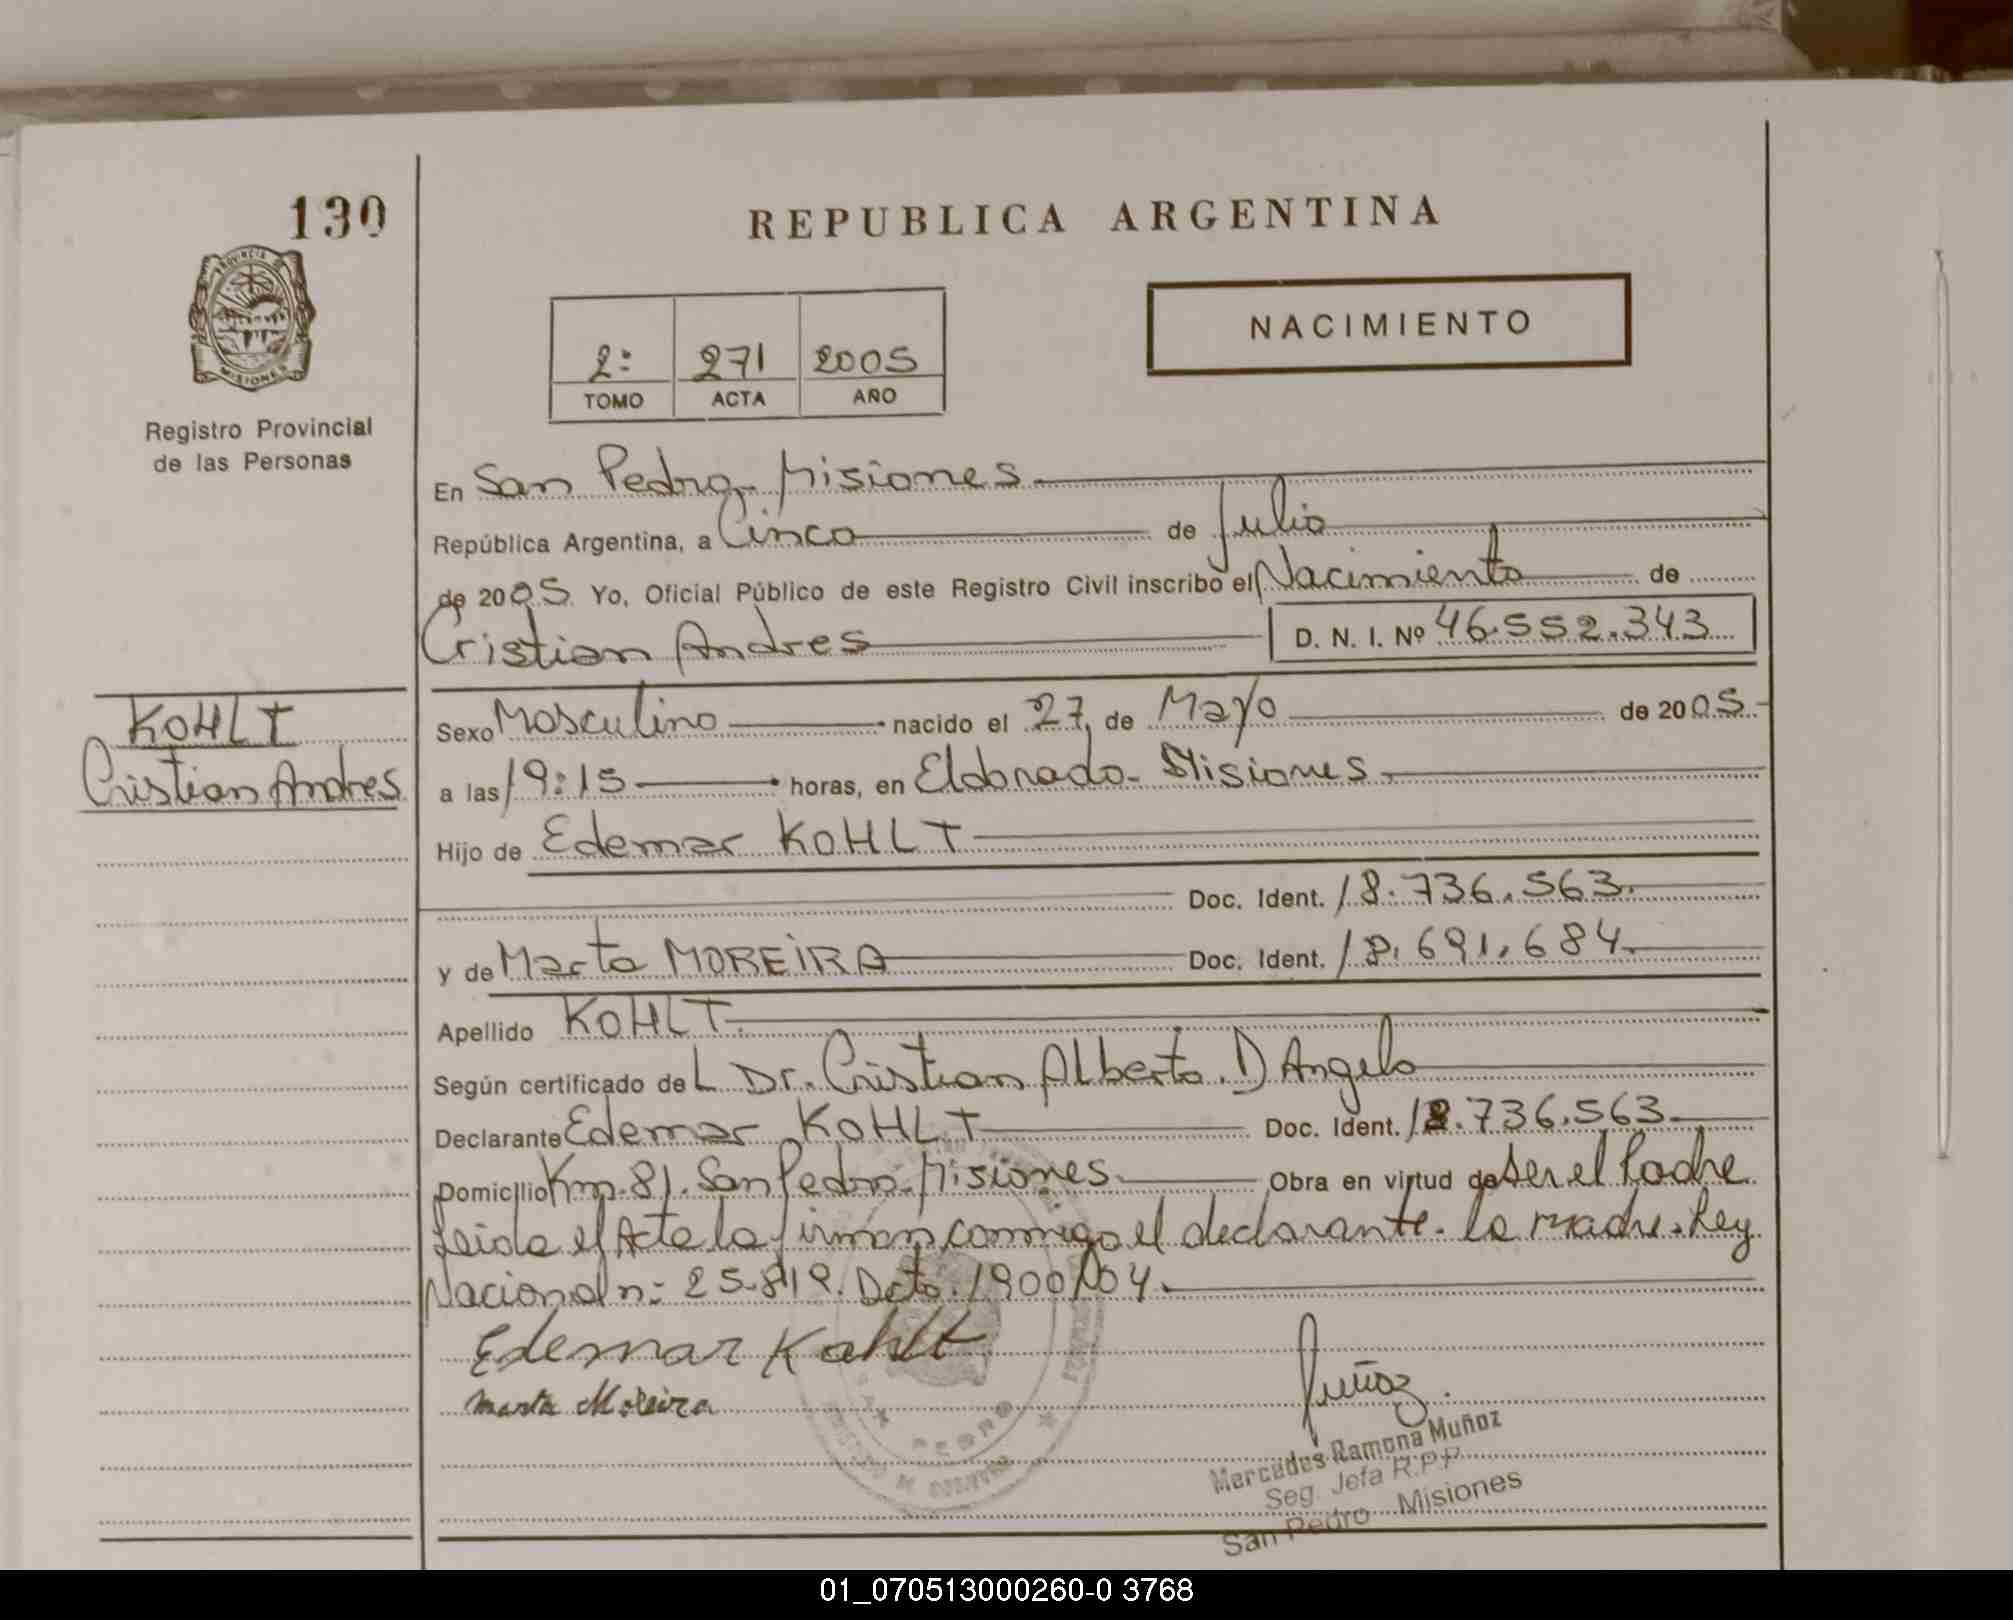 130
REPUBLICA ARGENTINA
PROVINCIA DE
MISIONES
NACIMIENTO
2: 271 2005
TOMO ACTA AÑO
Registro Provincial
de las Personas
En San Pedro. Misiones
República Argentina, a Cinco de Julio
de 2005. Yo, Oficial Público de este Registro Civil inscribo el Nacimiento de
Cristian Andres D. N. I. Nº 46.552.343
KOHLT
Cristian Andres
Sexo Masculino nacido el 27 de Mayo de 2005
a las 19:15 horas, en Eldorado - Misiones
Hijo de Edemar KOHLT
Doc. Ident. 18.736.563.
y de Marta MOREIRA Doc. Ident. 18.691.684.
Apellido KOHLT.
Según certificado del Dr. Cristian Alberto. D Angelo
Declarante Edemar KOHLT Doc. Ident. 18.736.563
Domicilio Km. 81. San Pedro. Misiones Obra en virtud de ser el Padre
Leida el Acta la firman conmigo el declarante. la madre. Ley
Nacional n: 25.819. Dcto. 1900/04.
Edemar Kohlt
Marta Moreira
Muñoz
SAN PEDRO
Mercedes Ramona Muñoz
Seg. Jefa R.P.P
San Pedro Misiones
01_070513000260-0 3768